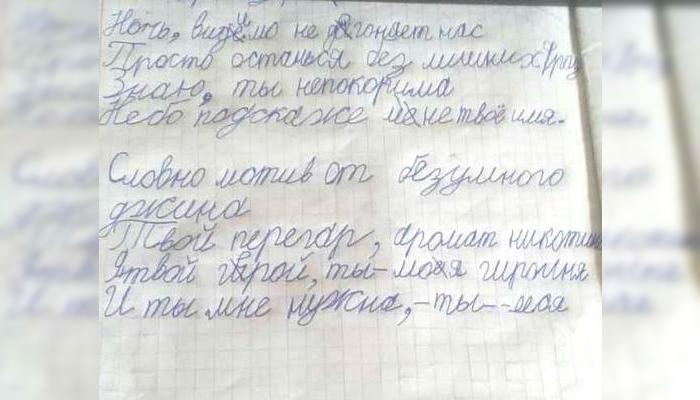 Ночь, видемо не догоняет нас
Просто останься без лишних фраз
Знаю, ты непокорима
Небо подскаже мне твоё имя.
Словно мотив от безумного
джина
Твой перегар, аромат никотин
Я твой герой, ты-моя гироиня
И ты мне нужна,-ты--моя